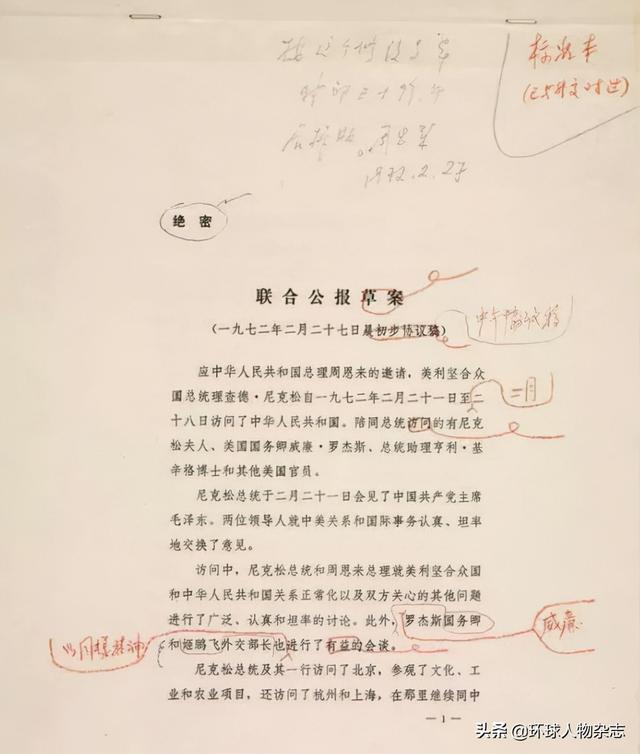 标准本
按这个修改了单
(已与外交对过)
1972.2.27
绝密
联合公报草案
(一九七二年二月二十七日晨初步协议稿)
中午协议稿
应中华人民共和国总理周恩来的邀请,美利坚合众
国总统理查德·尼克松自一九七二年二月二十一日至二
二月
十八日访问了中华人民共和国。陪同总统访问的有尼克
松夫人、美国国务卿威廉·罗杰斯、总统助理亨利·基
辛格博士和其他美国官员。
尼克松总统于二月二十一日会见了中国共产党主席
毛泽东。两位领导人就中美关系和国际事务认真、坦率
地交换了意见。
访问中,尼克松总统和周恩来总理就美利坚合众国
和中华人民共和国关系正常化以及双方关心的其他问题
进行了广泛、认真和坦率的讨论。此外,罗杰斯国务卿
威廉
以同样精神
和姬鹏飞外交部长也进行了有益的会谈。
尼克松总统及其一行访问了北京,参观了文化、工
业和农业项目,还访问了杭州和上海,在那里继续同中
— 1 —
头条 @环球人物杂志